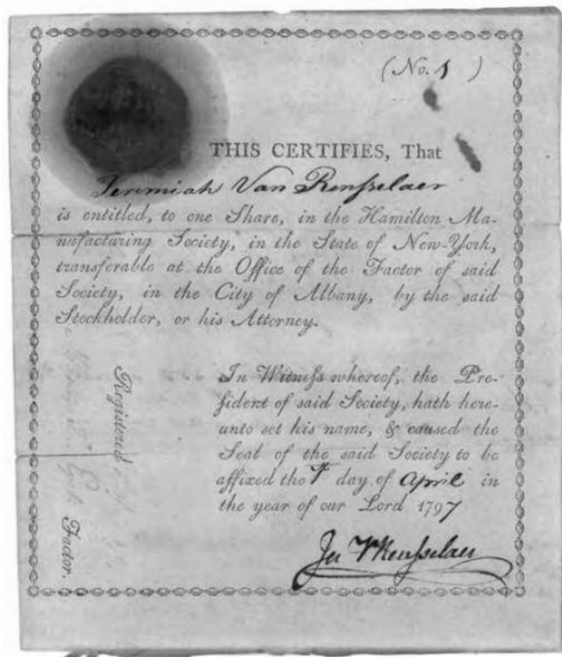 (No. 1 )
THIS CERTIFIES, That
Jeremiah Van Rensselaer
is entitled, to one Share, in the Hamilton Ma-
nufacturing Society, in the State of New-York,
transferable at the Office of the Factor of said
Society, in the City of Albany, by the said
Stockholder, or his Attorney.
In Witness whereof, the Pre-
sident of said Society, hath here-
unto set his name, & caused the
Seal of the said Society to be
affixed the day of April in
the year of our Lord 1797
Jer V Rensselaer
Registered
Factor.